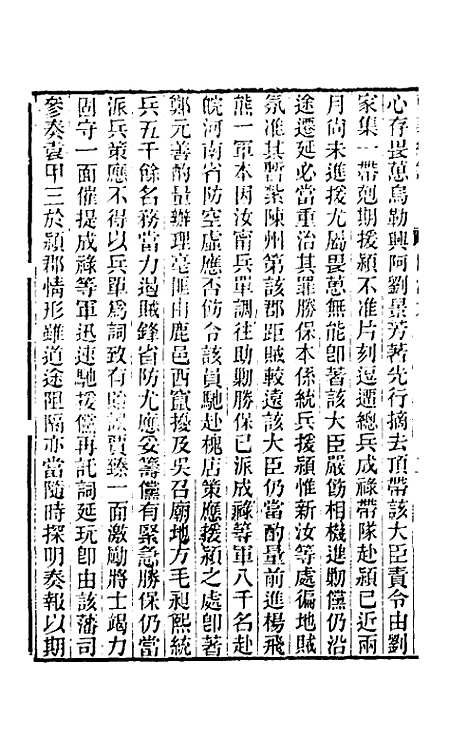 心存畏葸烏勒興阿劉景芳著先行摘去頂帶該大臣責令由劉
家集一帶剋期援潁不准片刻逗遛總兵成祿帶隊赴潁已近兩
月尚未進援尤屬畏葸無能卽著該大臣嚴飭相機進勦儻仍沿
途遷延必當重治其罪勝保本係統兵援潁惟新汝等處徧地賊
氛准其暫紮陳州第該郡距賊較遠該大臣仍當酌量前進楊飛
熊一軍本因汝甯兵單調往助勦勝保已派成祿等軍八千名赴
皖河南省防空虛應否仍令該員馳赴槐店策應援潁之處卽著
鄭元善酌量辦理亳匪由鹿邑西竄擾及吳召廟地方毛昶熙統
兵五千餘名務當力遏賊鋒省防尤應妥籌儻有緊急勝保仍當
派兵策應不得以兵單爲詞致有貽誤賈臻一面激勵將士竭力
固守一面催提成祿等軍迅速馳援儻再託詞延玩卽由該藩司
參奏袁甲三於潁郡情形雖道途阻隔亦當隨時探明奏報以期